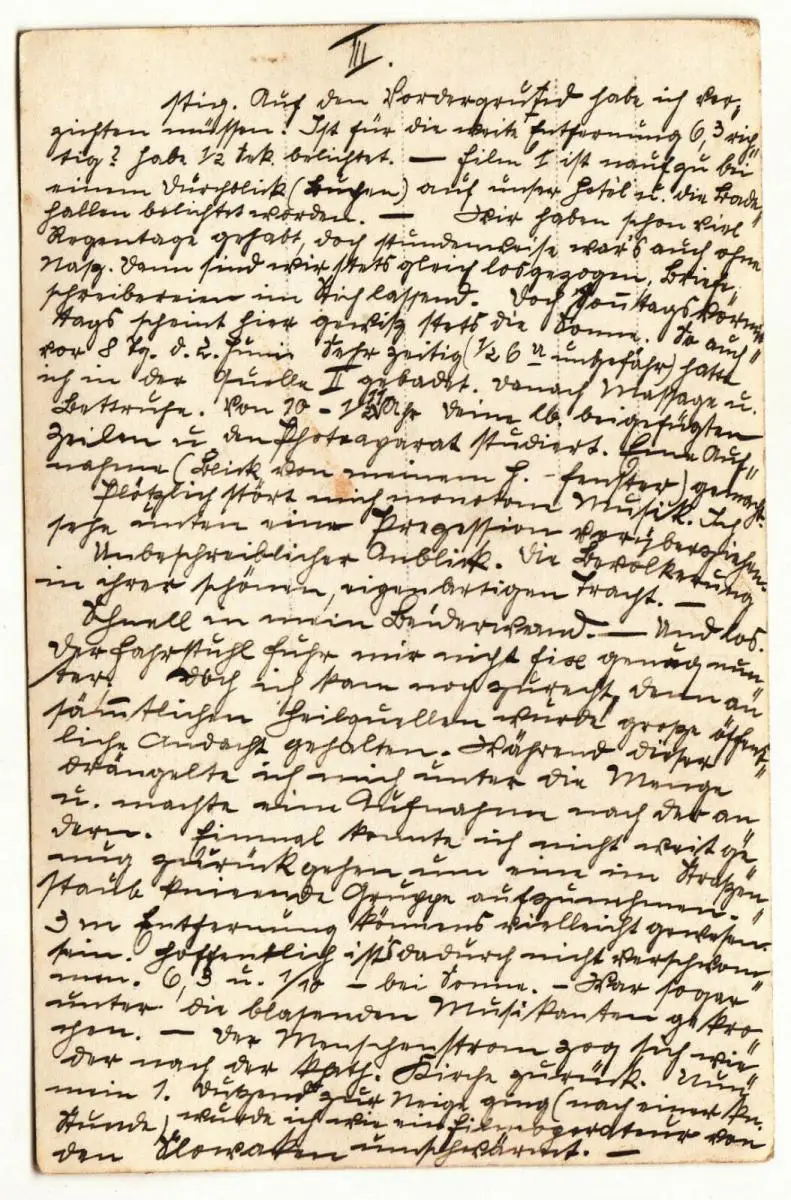 III.
stig. Auf den Vordergrund habe ich ver-
zichten müssen. Ist für die weite Entfernung 6,3 rich-
tig? habe 1/2 Sek. belichtet. — Film I ist
einem Durchblick (Buchen) auf unser Hotel u. die Bade-
hallen belichtet worden. — Wir haben schon viel
Regentage gehabt, doch stundenweise war's auch ohne
Nass. Dann sind wir stets gleich losgezogen, Brief-
schreibereien im Stich lassend. Doch Sonntags vormit-
tags scheint hier gewiss stets die Sonne. So auch
vor 8 Tg. d. 2. Juni. Sehr zeitig (1/2 6 U ungefähr) hatte
ich in der Quelle II gebadet. Danach Massage u.
Bettruhe. Von 10 - Uhr Deine lb. beigefügten
Zeilen u. den Photoaparat studiert. Eine Auf-
nahme (Blick von meinem H. - fenster) gemacht.
Plötzlich stört mich monotone Musik. Ich
sehe unten eine Prozession vorüberziehen.
Unbeschreiblicher Anblick. Die Bevölkerung
in ihrer schönen, eigenartigen Tracht. —
Schnell in mein Beiderwand. — Und los.
Der Fahrstuhl fuhr mir nicht fix genug run-
ter. Doch ich kam noch zurecht, denn an
sämtlichen Heilquellen wurde grosse öffent-
liche Andacht gehalten. Während dieser
drängelte ich mich unter die Menge
u. machte eine Aufnahme nach der an-
dern. Einmal konnte ich nicht weit ge-
nug zurückgehen um eine im Strassen-
staub knieende Gruppe aufzunehmen.
3 m Entfernung können's vielleicht gewesen
sein. Hoffentlich ist's dadurch nicht verschwom-
men. 6,3 u. 1/10 - bei Sonne. - War sogar
unter die blasenden Musikanten gekro-
chen. — Der Menschenstrom zog sich wie-
der nach der kath. Kirche zurück. Nun
mein 1. Dutzend zur Neige ging (nach einer kn.
Stunde) wurde ich wie ein Filmoperateur von
den Slowaken umschwärmt. —